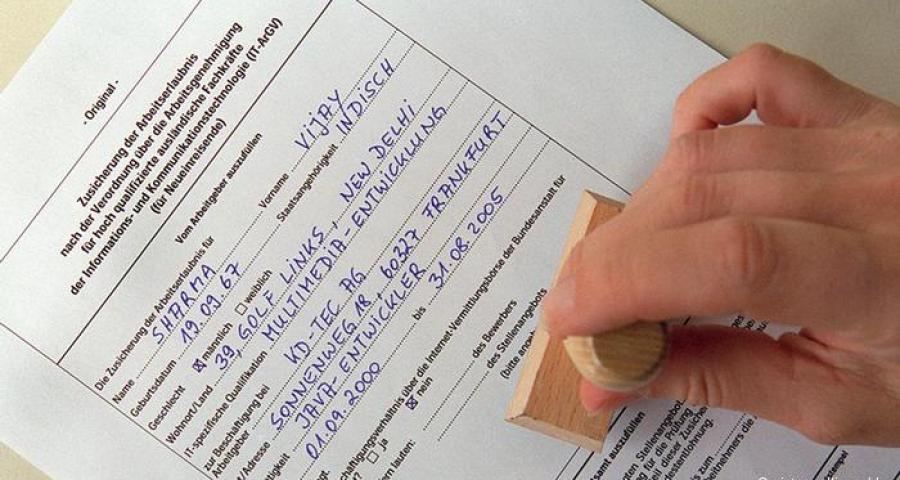 - Original -
Zusicherung der Arbeitserlaubnis
nach der Verordnung über die Arbeitsgenehmigung
für hoch qualifizierte ausländische Fachkräfte
der Informations- und Kommunikationstechnologie (IT-ArGV)
(für Neueinreisende)
Vom Arbeitgeber auszufüllen
Die Zusicherung der Arbeitserlaubnis für
Name SHARMA Vorname VIJAY
Geburtsdatum 19.09.67 Staatsangehörigkeit INDISCH
Geschlecht ☒ männlich ☐ weiblich
Wohnort/Land 39, GOLF LINKS, NEW DELHI
IT-spezifische Qualifikation MULTIMEDIA-ENTWICKLUNG
zur Beschäftigung bei
Arbeitgeber KD-TEC AG
/Adresse SONNENWEG 18, 60327 FRANKFURT
tigkeit JAVA-ENTWICKLER
01.09.2000 bis 31.08.2005
chäftigungsverhältnis über die Internet-Vermittlungsbörse der Bundesanstalt für
☐ ja ☒ nein
ern lauten: des Bewerbers
des Stellenangebots
amt auszufüllen